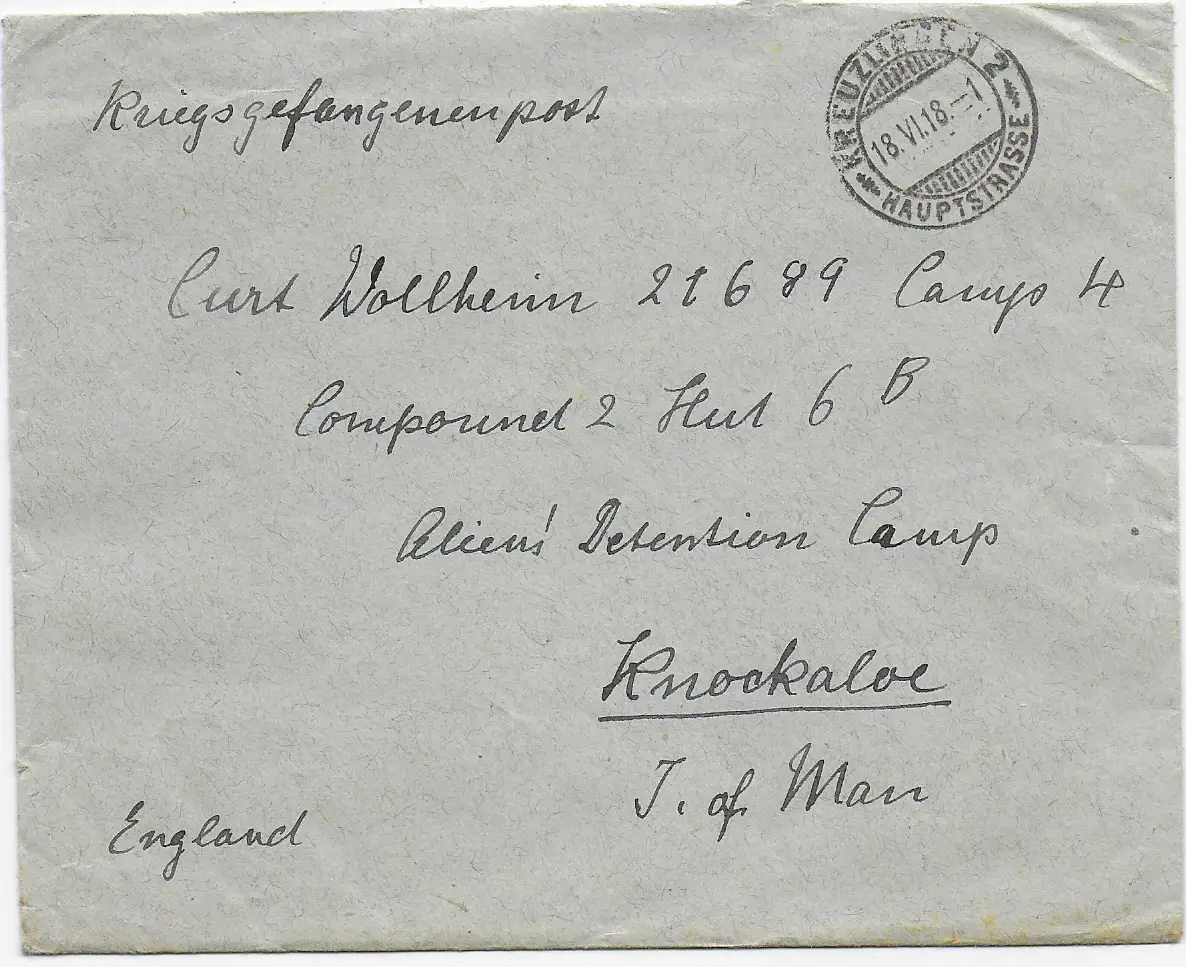 Kriegsgefangenenpost
KREUZLINGEN 2
18.VI.18.
HAUPTSTRASSE
Curt Wollheim 21689 Camp 4
Compound 2 Hut 6 B
Aliens' Detention Camp
Knockaloe
I. of Man
England